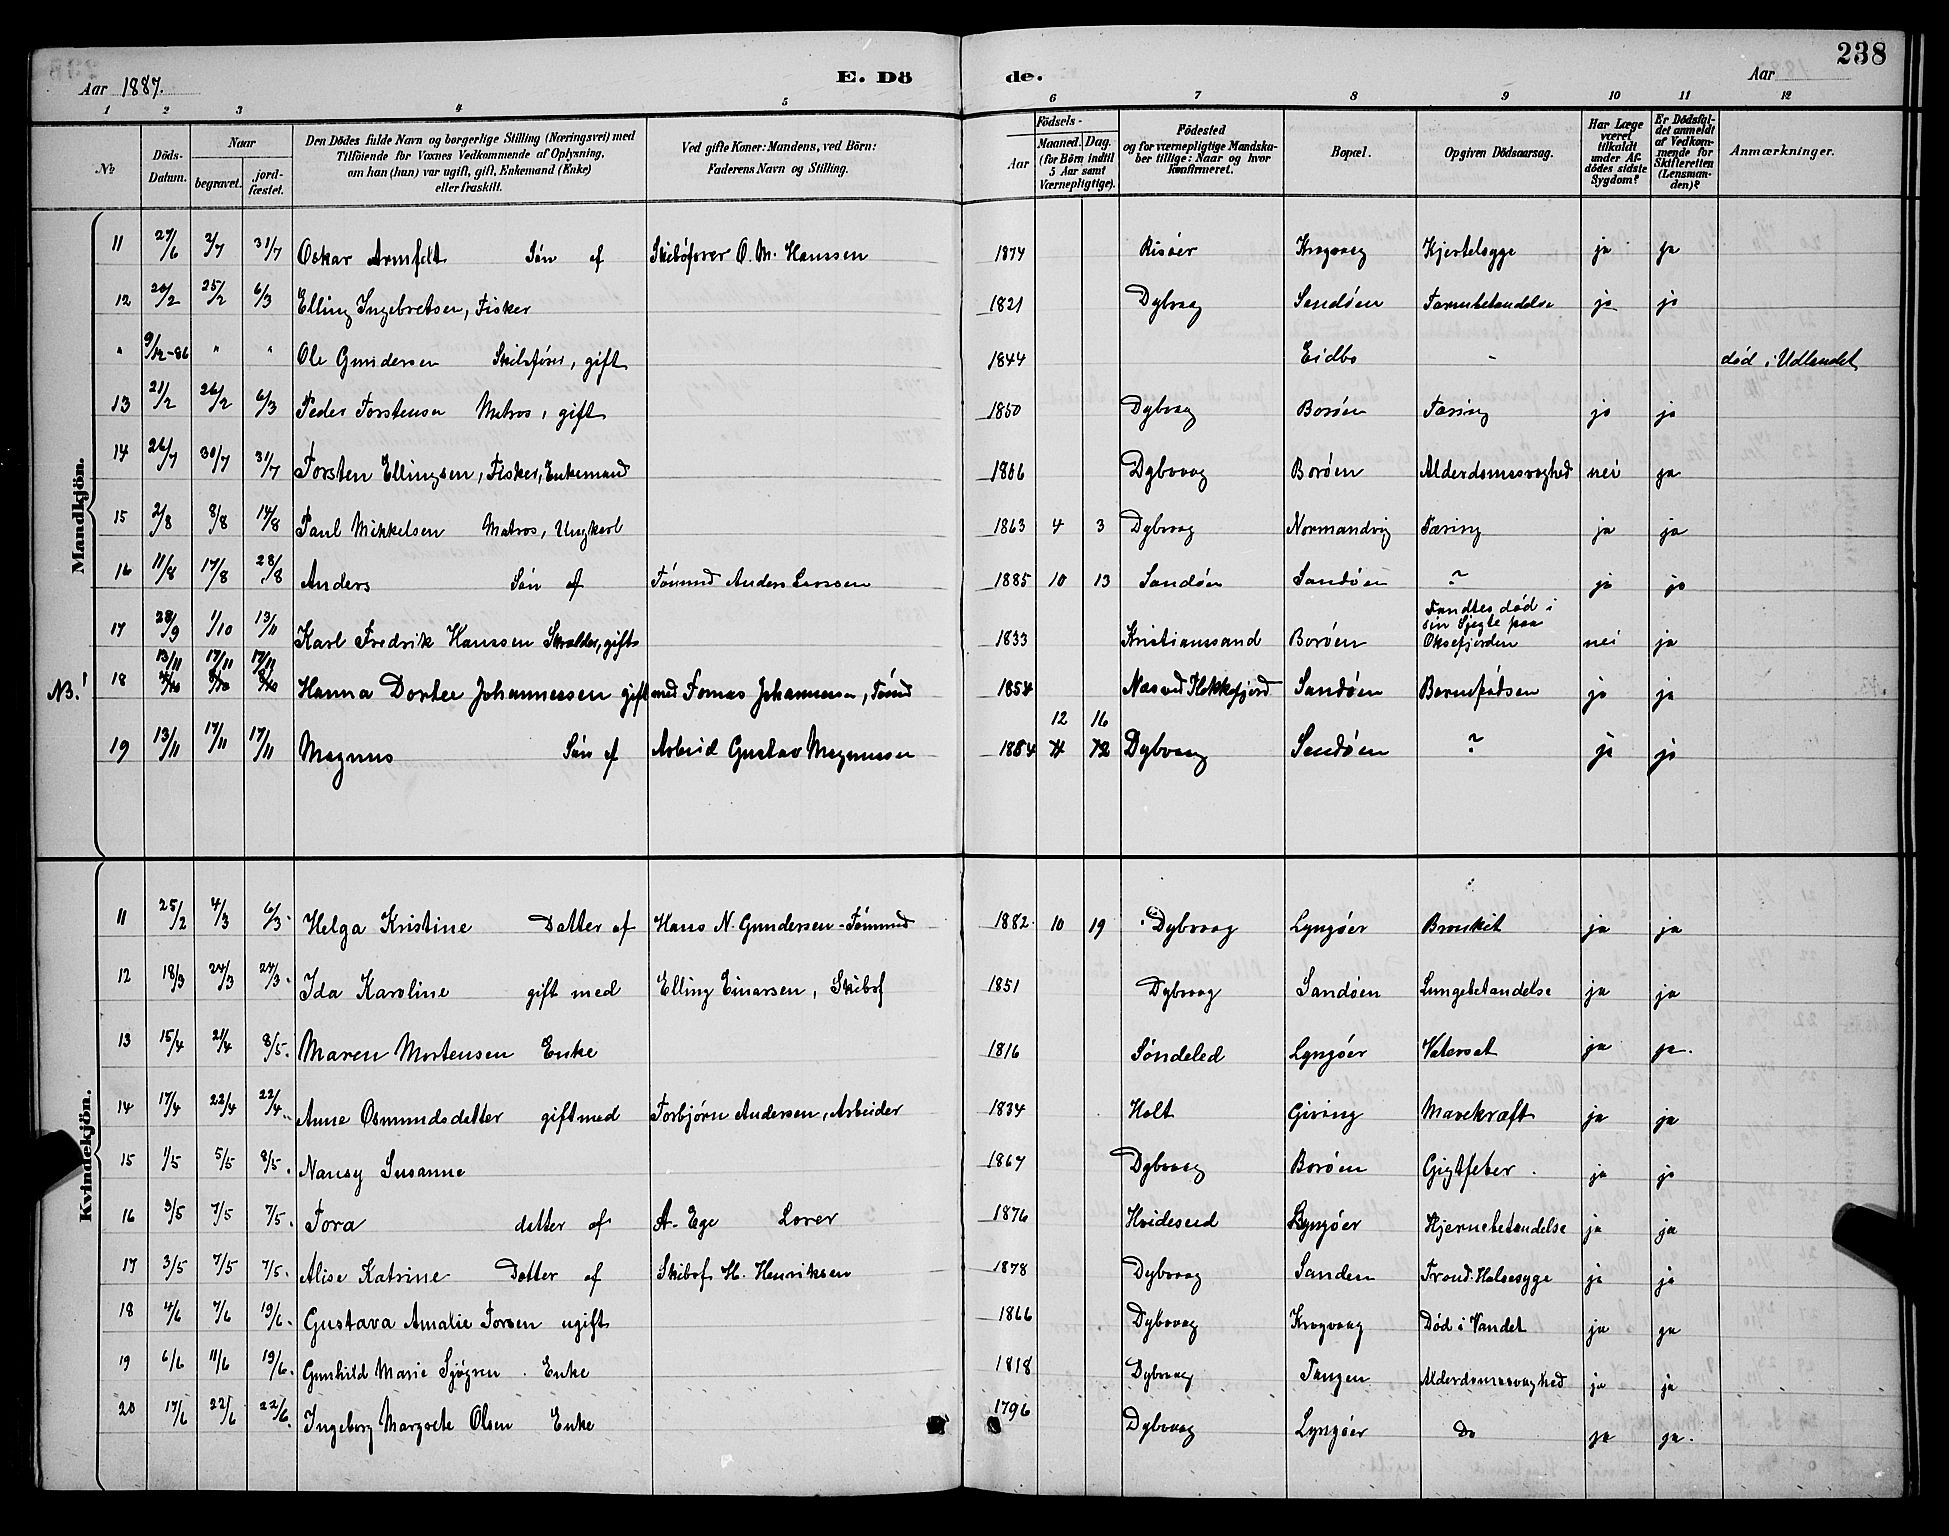 238
Aar 1887.
E. Dö
de.
Aar
1 2 3 4 5 6 7 8 9 10 11 12
No
Döds-Datum.
Naar
begravet.
jord-fæstet.
Den Dödes fulde Navn og borgerlige Stilling (Næringsvei) med
Tilföiende for Voxnes Vedkommende af Oplysning,
om han (hun) var ugift, gift, Enkemand (Enke)
eller fraskilt.
Ved gifte Koner: Mandens, ved Börn:
Faderens Navn og Stilling.
Födsels-
Aar
Maaned. Dag.
(for Börn indtil
5 Aar samt
Værnepligtige).
Födested
og for værnepligtige Mandska-
ber tillige: Naar og hvor
konfirmeret.
Bopæl.
Opgiven Dödsaarsag.
Har Læge
været
tilkaldt
under Af-
dödes sidste
Sygdom?
Er Dödsfal-
det anmeldt
af Vedkom-
mende for
Skifteretten
(Lensman-
den)?
Anmærkninger.
Mandkjön.
11 27/6 3/7 31/7 Oskar Armfelt Søn af Skibsfører O. M. Hanssen 1874 Risøer Krogvaag Kjertelsyge ja ja
12 20/2 25/2 6/3 Elling Ingebretsen, Fisker 1821 Dybvaag Sandøen Tarmbetændelse ja ja
" 9/12-86 " " Ole Gundersen Skibsfører, gift 1844 Eidbo - død i Udlandet
13 21/2 26/2 6/3 Peder Torstensen Matros, gift 1850 Dybvaag Borøen Tæring ja ja
14 26/7 30/7 31/7 Torsten Ellingsen, Fisker, Enkemand 1806 Dybvaag Borøen Alderdomssvaghed nei ja
15 2/8 8/8 14/8 Paul Mikkelsen Matros, Ungkarl 1863 4 3 Dybvaag Normandvig Tæring ja ja
16 11/8 17/8 28/8 Anders Søn af Tømmd Anders Larssen 1885 10 13 Sandøen Sandøen ? ja ja
17 28/9 1/10 13/11 Karl Fredrik Hanssen Skrædder, gift 1833 Kristianssand Borøen Fandtes død i
sin Sjegte paa
Oksefjorden nei ja
NB! 18 13/11 17/11 17/11 Hanna Dortee Johannessen gift med Tomas Johannessen, Tømd 1854 Næs ved Flekkefjord Sandøen Barnefødsen ja ja
12 16
19 13/11 17/11 17/11 Magnus Søn af Arbeid Gustav Magnussen 1884 Dybvaag Sandøen ? ja ja
Kvindekjön.
11 25/2 4/3 6/3 Helga Kristine Datter af Hans N. Gundersen - Tømmd 1882 10 19 Dybvaag Lyngøer Bronkit ja ja
12 18/3 24/3 24/3 Ida Karoline gift med Elling Einarsen, Skibsf 1851 Dybvaag Sandøen Lungebetændelse ja ja
13 15/4 21/4 8/5 Maren Mortensen Enke 1816 Søndeled Lyngøer Vatersot ja ja
14 17/4 22/4 22/4 Anne Osmundsdatter gift med Torbjørn Andersen, Arbeider 1834 Holt Giving Mavekræft ja ja
15 1/5 5/5 8/5 Nansy Susanne 1867 Dybvaag Borøen Gigtfeber ja ja
16 3/5 7/5 7/5 Tora datter af A. Ege Lærer 1876 Hvideseid Lyngøer Hjernebetændelse ja ja
17 3/5 7/5 7/5 Alise Katrine Datter af Skibsf H. Henriksen 1878 Dybvaag Sanden Trond. Halsesyge ja ja
18 4/6 7/6 19/6 Gustava Amalie Torsen ugift 1866 Dybvaag Krogvaag Død i Vandet ja ja
19 6/6 11/6 19/6 Gunhild Marie Sjøgren Enke 1818 Dybvaag Tangen Alderdomssvaghed ja ja
20 17/6 22/6 22/6 Ingeborg Margrete Olsen Enke 1796 Dybvaag Lyngøer Do ja ja